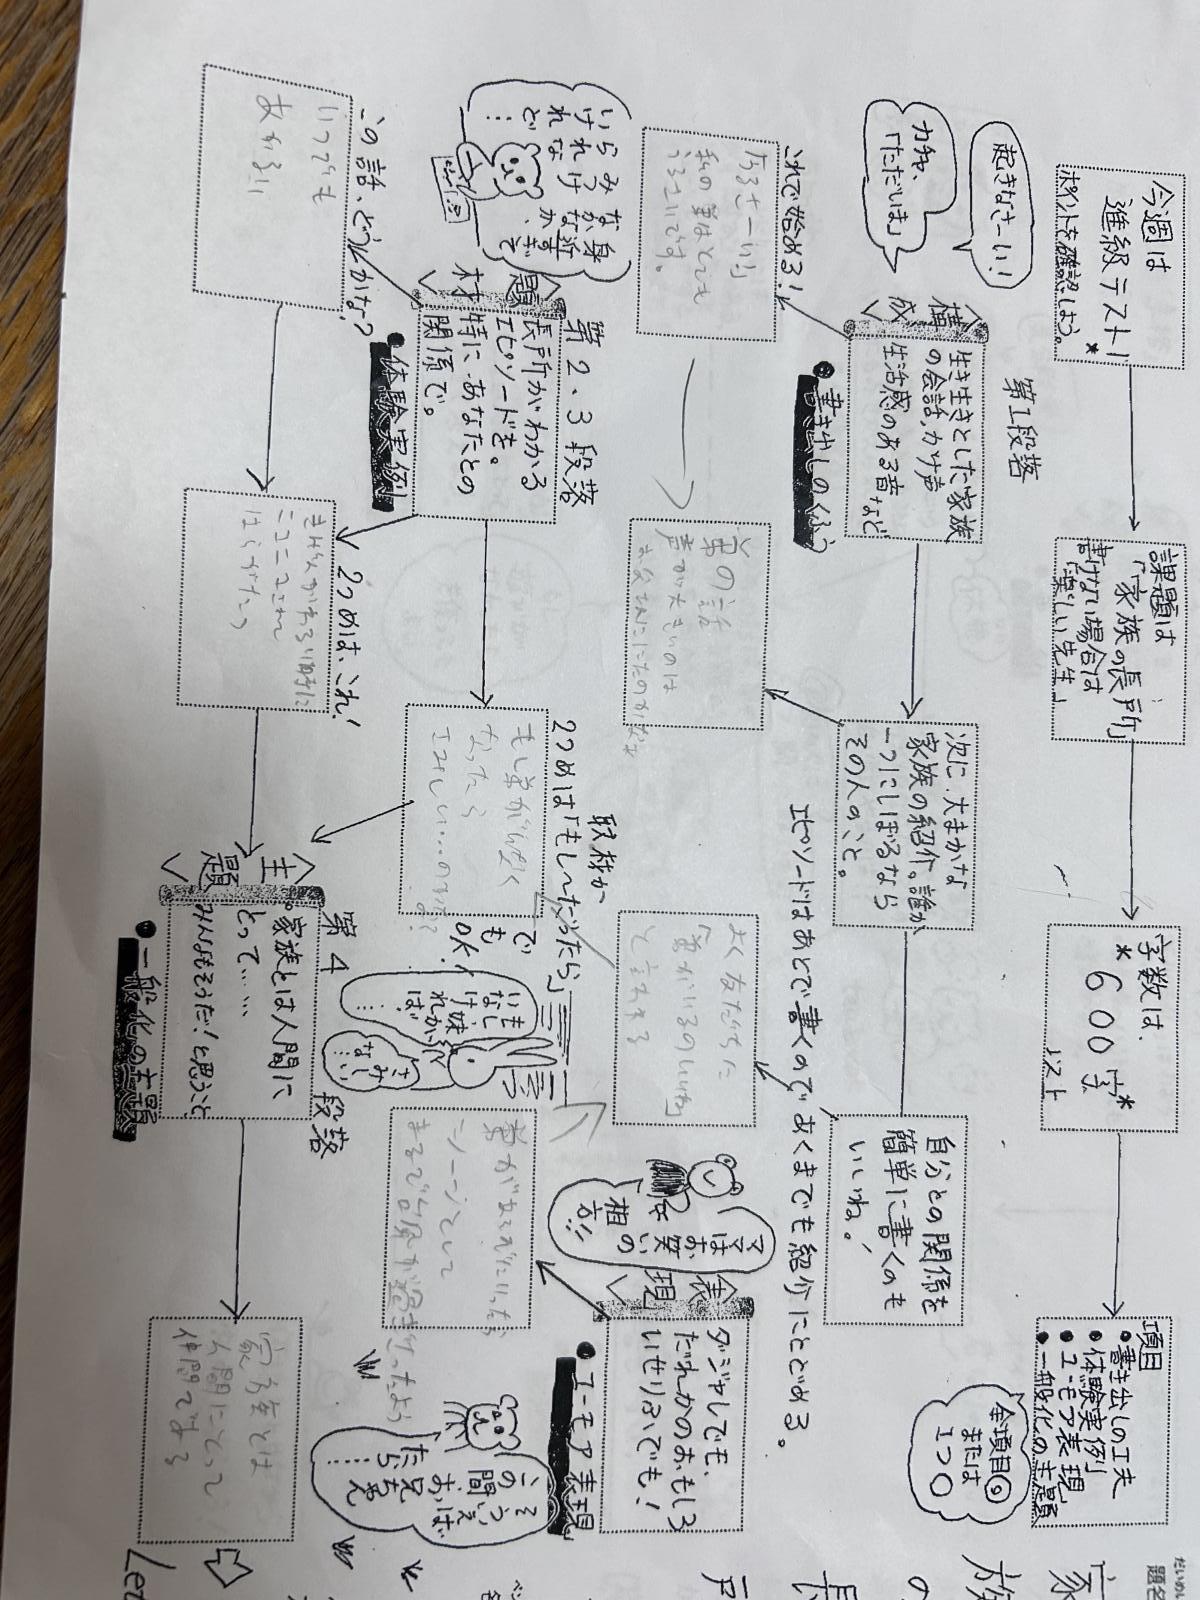 今週は
進級テスト!
*ポイントを確認しよう。
課題は
「家族の長所」
書けない場合は
「楽しい先生」
字数は、
*600字*
ジスト
項目
●書き出しの工夫
●体験実例
●ユーモア表現
●一般化の主題
全項目◎
または
1つ○
だいめい
題名
家
族
の
長
所
起きなさーい!
カチャ、
「ただいま」
〈構成〉
第1段落
生き生きとした家族
の会話、かけ声
生活感のある音など
●書き出しのくふう
次に、大まかな
家族の紹介。誰か
一つにしぼるなら
その人のこと。
自分との関係を
簡単に書くのも
いいね!
エピソードはあとで書くので、あくまでも紹介にとどめる。
これで始める!
「うるさーい」
私の弟はとても
うるさいです。
弟の話
声が大きいのは
お父さんににたのかな
よく友だちに
「弟がいるのいいね」
と言われる
ママは
お笑い
相の
方!!
〈表現〉
ダジャレでも、
だれかのおもしろ
いせりふでも!
●ユーモア表現
みんな身
らっかな近
いけないか、すぎて
けれど…
〈題材〉
第2.3段落
長所がわかる
エピソードを。
特に、あなたとの
関係で。
●体験実例
取材か
2つめは「もし~だったら」
でも
OK!
もし弟がいなく
なったら
さみしい…のかな?
いもし、妹が
いなければ!
……
さみしい
…
弟があそびにいったら
シーンとして
まるで台風が過ぎさったよう
そういえば
この間、お兄ちゃん
たら……
この話、どうかな?
いつでも
あかるい
2つめは、これ!
〈主題〉
第4段落
家族とは人間に
とって……
みんなもそうだ!と思うこと
●一般化の主題
家族とは
人間にとって
仲間である
Let